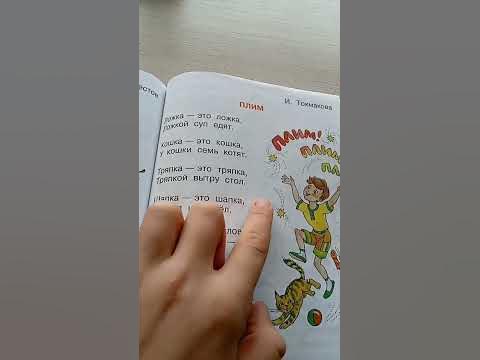 естов
ПЛИМ
И. Токмакова
Ложка — это ложка,
Ложкой суп едят.
Кошка — это кошка,
У кошки семь котят.
Тряпка — это тряпка,
Тряпкой вытру стол.
Шапка — это шапка,
ПЛИМ!